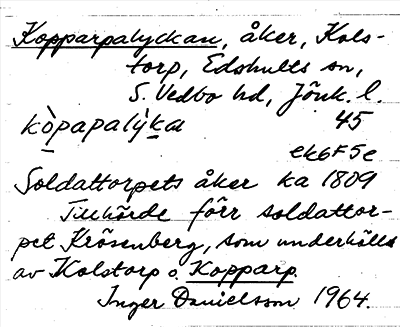 Kopparpalyckan, åker, Kols-
torp, Edshults sn,
S. Vedbo hd, Jönk. l.
kòpapalỳka 45
ek6F5e
Soldattorpets åker ka 1809
Tillhörde förr soldattor-
pet Krösenberg, som underhölls
av Kolstorp o. Kopparp.
Inger Danielsson 1964.